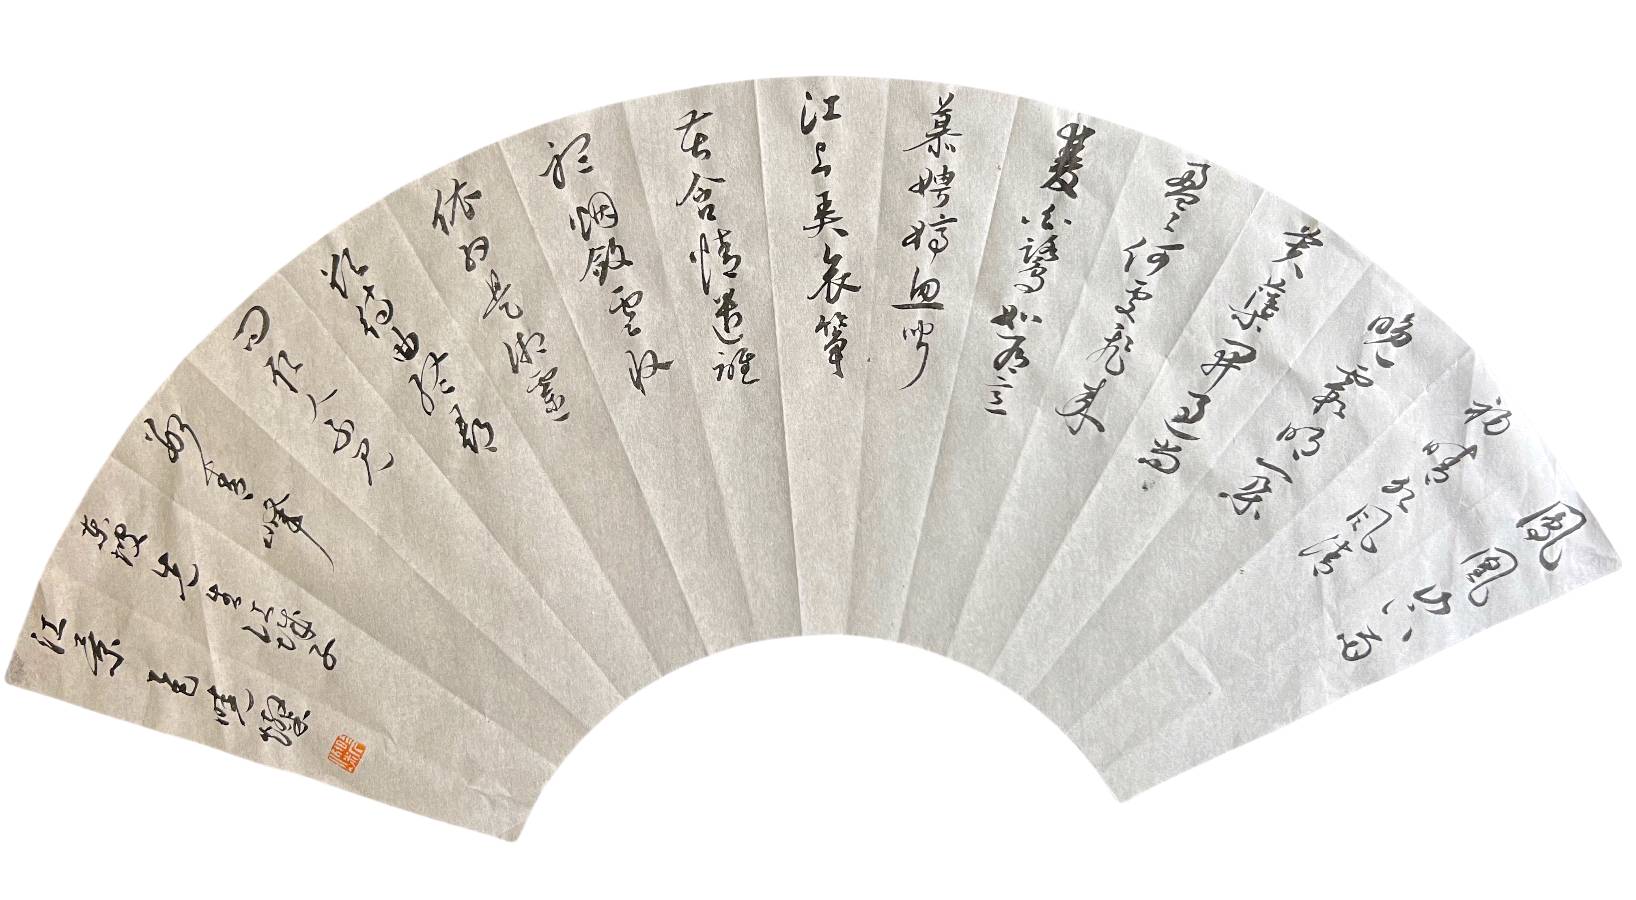 鳳凰山下雨
初晴水風清
晚霞明一朵
芙蕖開過尚
盈盈何處飛來
雙白鷺如有意
慕娉婷忽聞
江上弄哀箏
苦含情遣誰
聽烟斂雲收
依約是湘靈
欲待曲終尋
問取人不見
數青峰
東坡先生江城子
江景